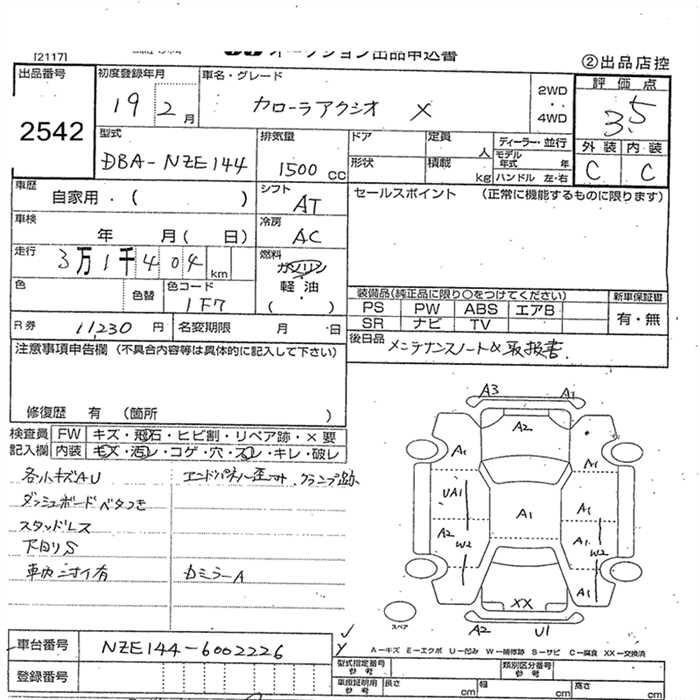 [2117] オークション出品申込書 ②出品店控
出品番号 初度登録年月 車名・グレード 評価点
2542 19 2月 カローラアクシオ X 2WD ・・ 4WD 3.5
型式 排気量 ドア 定員 人 ディーラー・並行 外装 内装
DBA-NZE144 1500 cc 形状 積載 kg モデル年式 年 ハンドル 左・右 C C
車歴 自家用・( ) シフト AT セールスポイント (正常に機能するものに限ります)
車検 年 月( 日) 冷房 AC
走行 3万1千404 km 燃料 ガソリン 軽油 ( )
色 色替 色コード 1F7 装備品(純正品に限り○をつけてください) 新車保証書
PS PW ABS エアB 有・無
R券 11,230 円 名変期限 月 日 SR ナビ TV
注意事項申告欄 (不具合内容等は具体的に記入して下さい) 後日品 メンテナンスノート&取扱書.
修復歴 有 (箇所 )
検査員 FW キズ・飛石・ヒビ割・リペア跡・×要
記入欄 内装 キズ・汚レ・コゲ・穴・スレ・キレ・破レ
各小キズAU エンドパネル歪ミ サ. クランプ跡
ダッシュボードベタつき
スタッドレス
下回りS
車内ニオイ有 Dミラー A
A3 A1
A2
A1 A1
UA1 A1 A1
A2 W2 A1 W2
A1
XX
スペア A2 U1
A-キズ E-エクボ U-凹み W-補修跡 S-サビ C-腐食 XX-交換済
車台番号 NZE144-6002226
型式指定番号 参考 類別区分番号 参考
登録番号 車庫証明用 参考 長さ cm 幅 cm 高さ cm